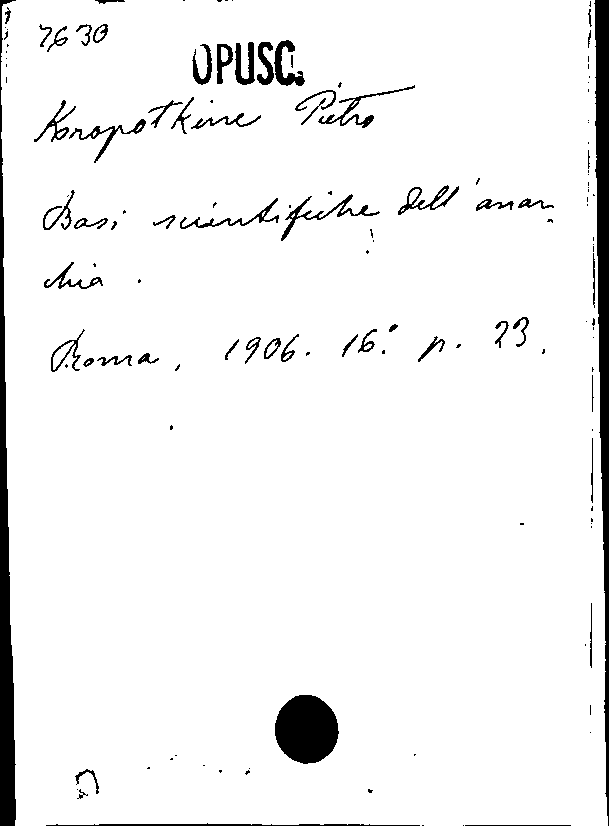 7630
OPUSC.
Kropotkine Pietro
Basi scientifiche dell'anar-
chia.
Roma, 1906. 16.° p. 23.